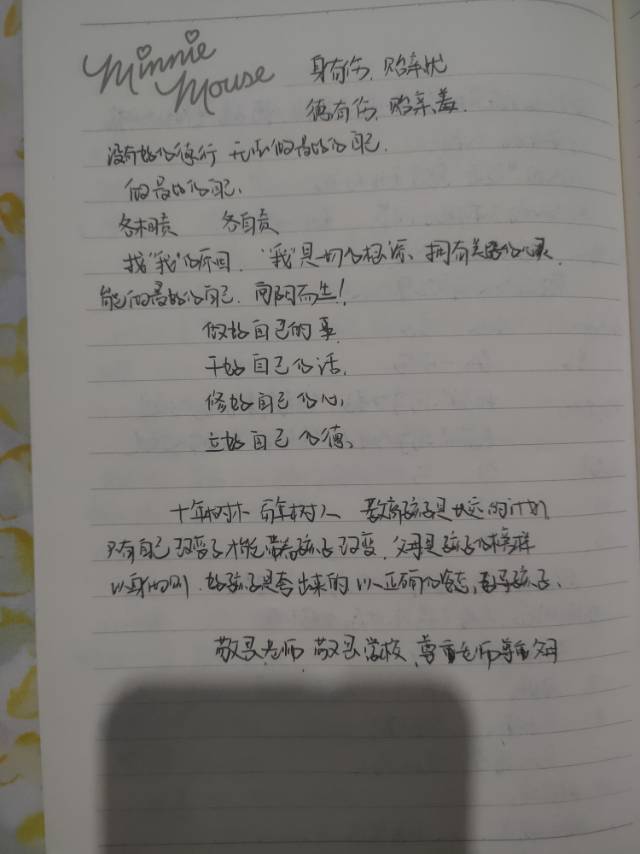 Minnie
Mouse
身有伤,贻亲忧
德有伤,贻亲羞.
没有好的德行 无以做最好的自己.
做最好的自己、
各相责 各自责
找“我”的原因. “我”是一切的根源、拥有
能做最好的自己. 向阳而生!
做好自己的事
干好自己的活,
修好自己的心,
立好自己的德、
十年树木 百年树人 教育孩子是长远的计划
只有自己改变了才能带着孩子改变. 父母是孩子的榜样
以身作则. 好孩子是夸出来的 以正确的 孩子、
敬畏老师 敬畏学校, 尊重老师尊重父母